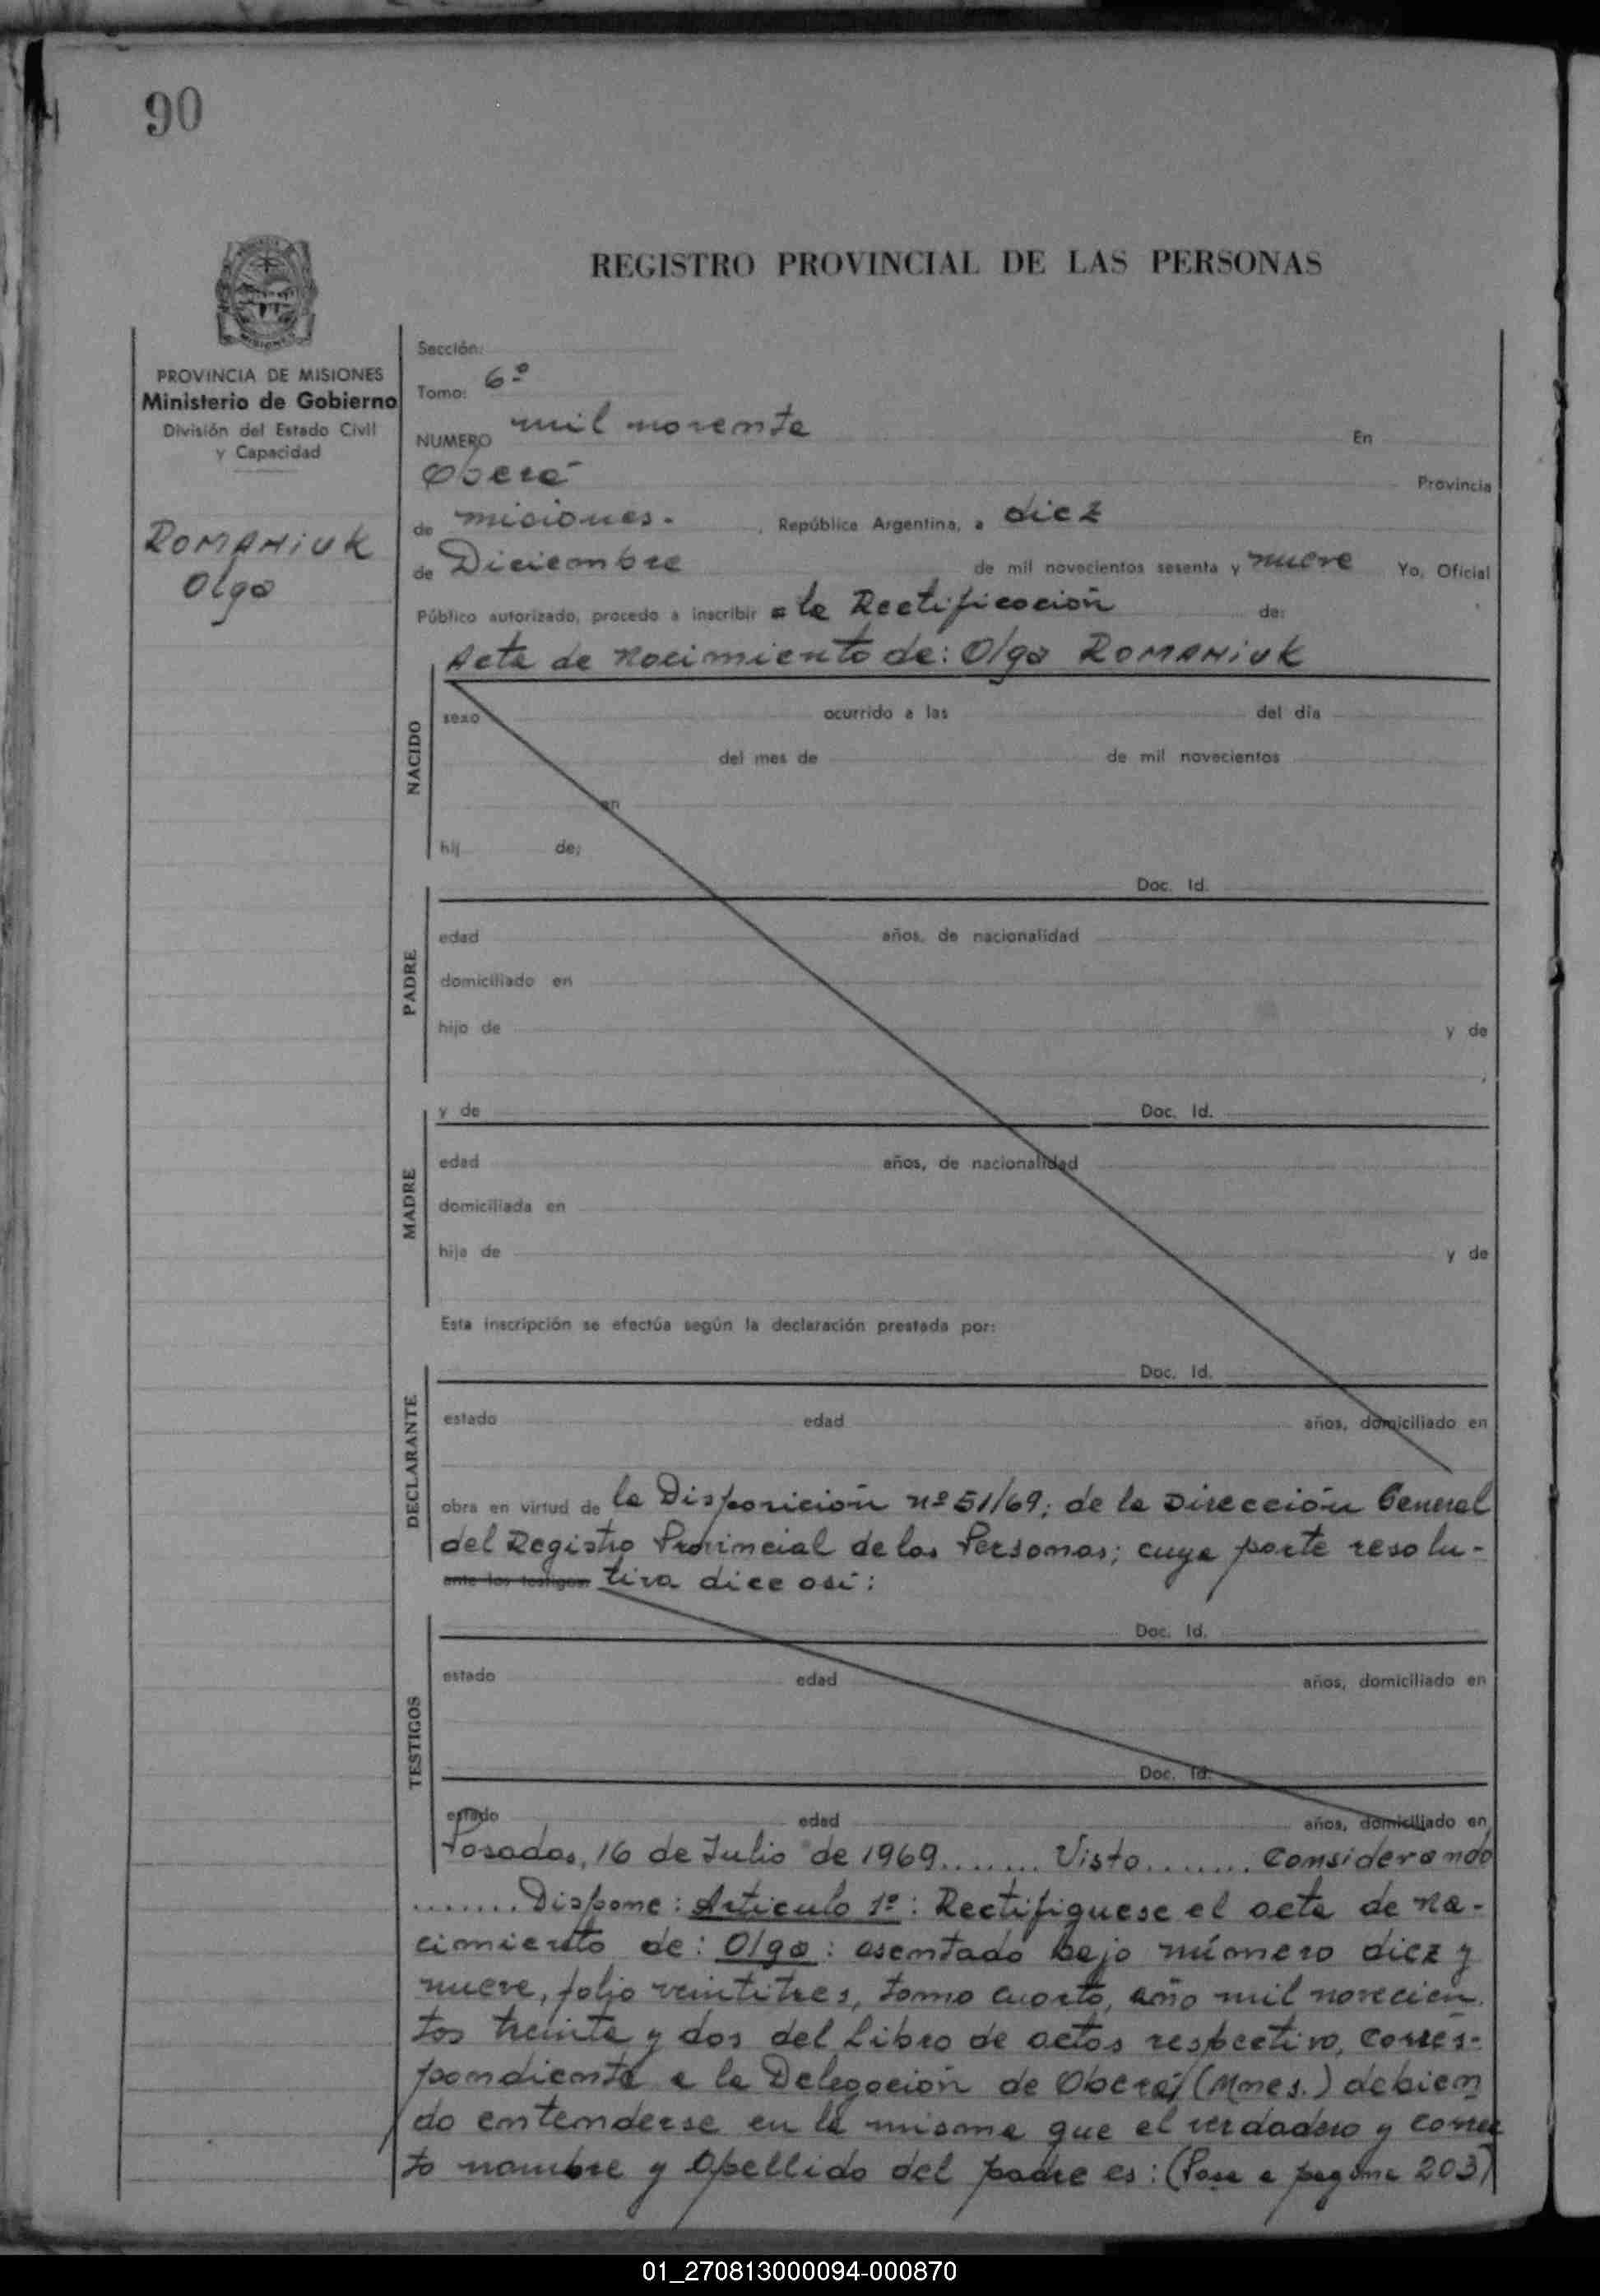 90
REGISTRO PROVINCIAL DE LAS PERSONAS
MISIONES
PROVINCIA DE MISIONES
Ministerio de Gobierno
División del Estado Civil
y Capacidad
ROMANIUK
Olga
Sección:
Tomo: 6º
NUMERO mil noventa En
Oberá Provincia
de misiones. , República Argentina, a diez
de Diciembre de mil novecientos sesenta y nueve Yo, Oficial
Público autorizado, procedo a inscribir a la Rectificación de:
Acta de Nacimiento de: Olga ROMANIUK
NACIDO
sexo ocurrido a las del día
del mes de de mil novecientos
en
hij de:
PADRE
Doc. Id.
edad años, de nacionalidad
domiciliado en
hijo de y de
MADRE
y de Doc. Id.
edad años, de nacionalidad
domiciliada en
hija de y de
Esta inscripción se efectúa según la declaración prestada por:
DECLARANTE
Doc. Id.
estado edad años, domiciliado en
obra en virtud de la Disposición nº 51/69; de la Dirección General
del Registro Provincial de las Personas; cuya parte resolu-
ante los testigos: tiva dice así:
TESTIGOS
Doc. Id.
estado edad años, domiciliado en
Doc. Id.
estado edad años, domiciliado en
Posadas, 16 de Julio de 1969....... Visto....... Considerando
....... Dispone: Artículo 1º: Rectifíquese el acta de Na-
cimiento de: Olga: asentado bajo número diez y
nueve, folio veintitres, tomo cuarto, año mil novecien
tos treinta y dos del Libro de actas respectivo, corres-
pondiente a la Delegación de Oberá, (Mnes.) debien
do entenderse en la misma que el verdadero y correc
to nombre y apellido del padre es: (Pasa a pagina 203)
01_270813000094-000870